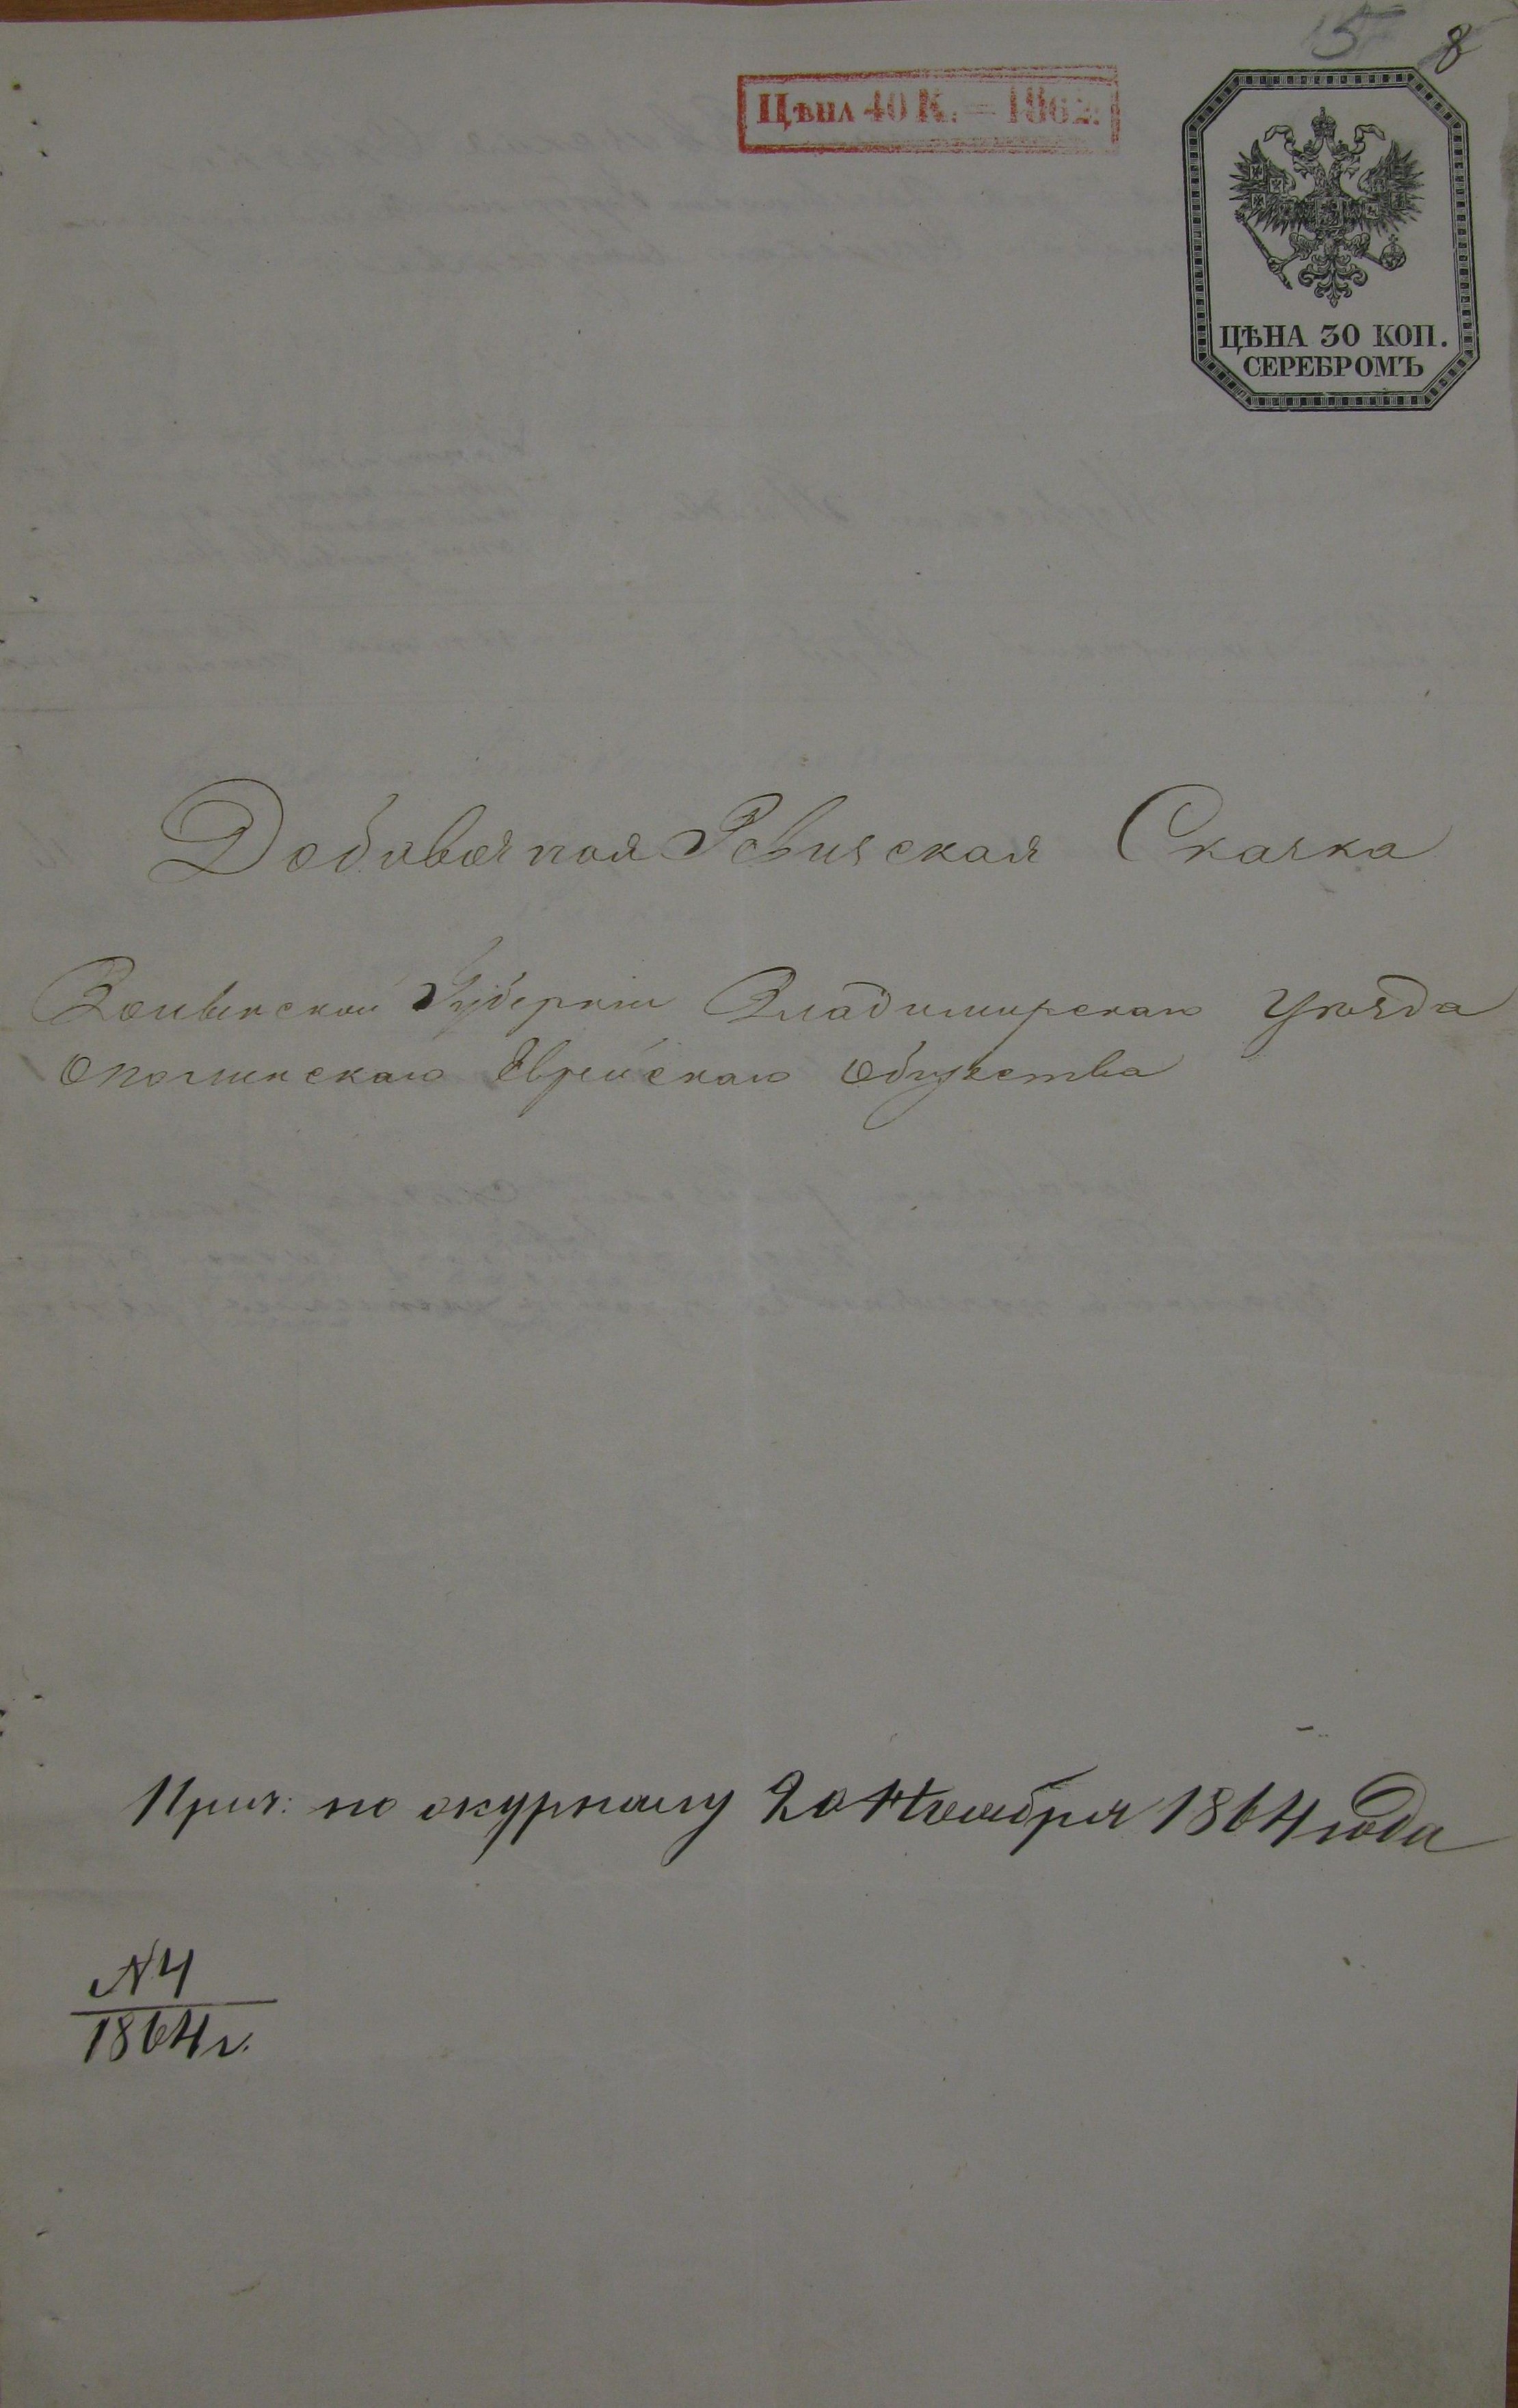 15 8
Цѣна 40 К. = 1862.
ЦѢНА 30 КОП.
СЕРЕБРОМЪ
Добавочная Ревизская Сказка
Волынской Губернии Владимирскаго Уѣзда
Опалинскаго Еврейскаго Общества
Прич: по журналу 20 Ноября 1864 года
№ 4
1864 г.